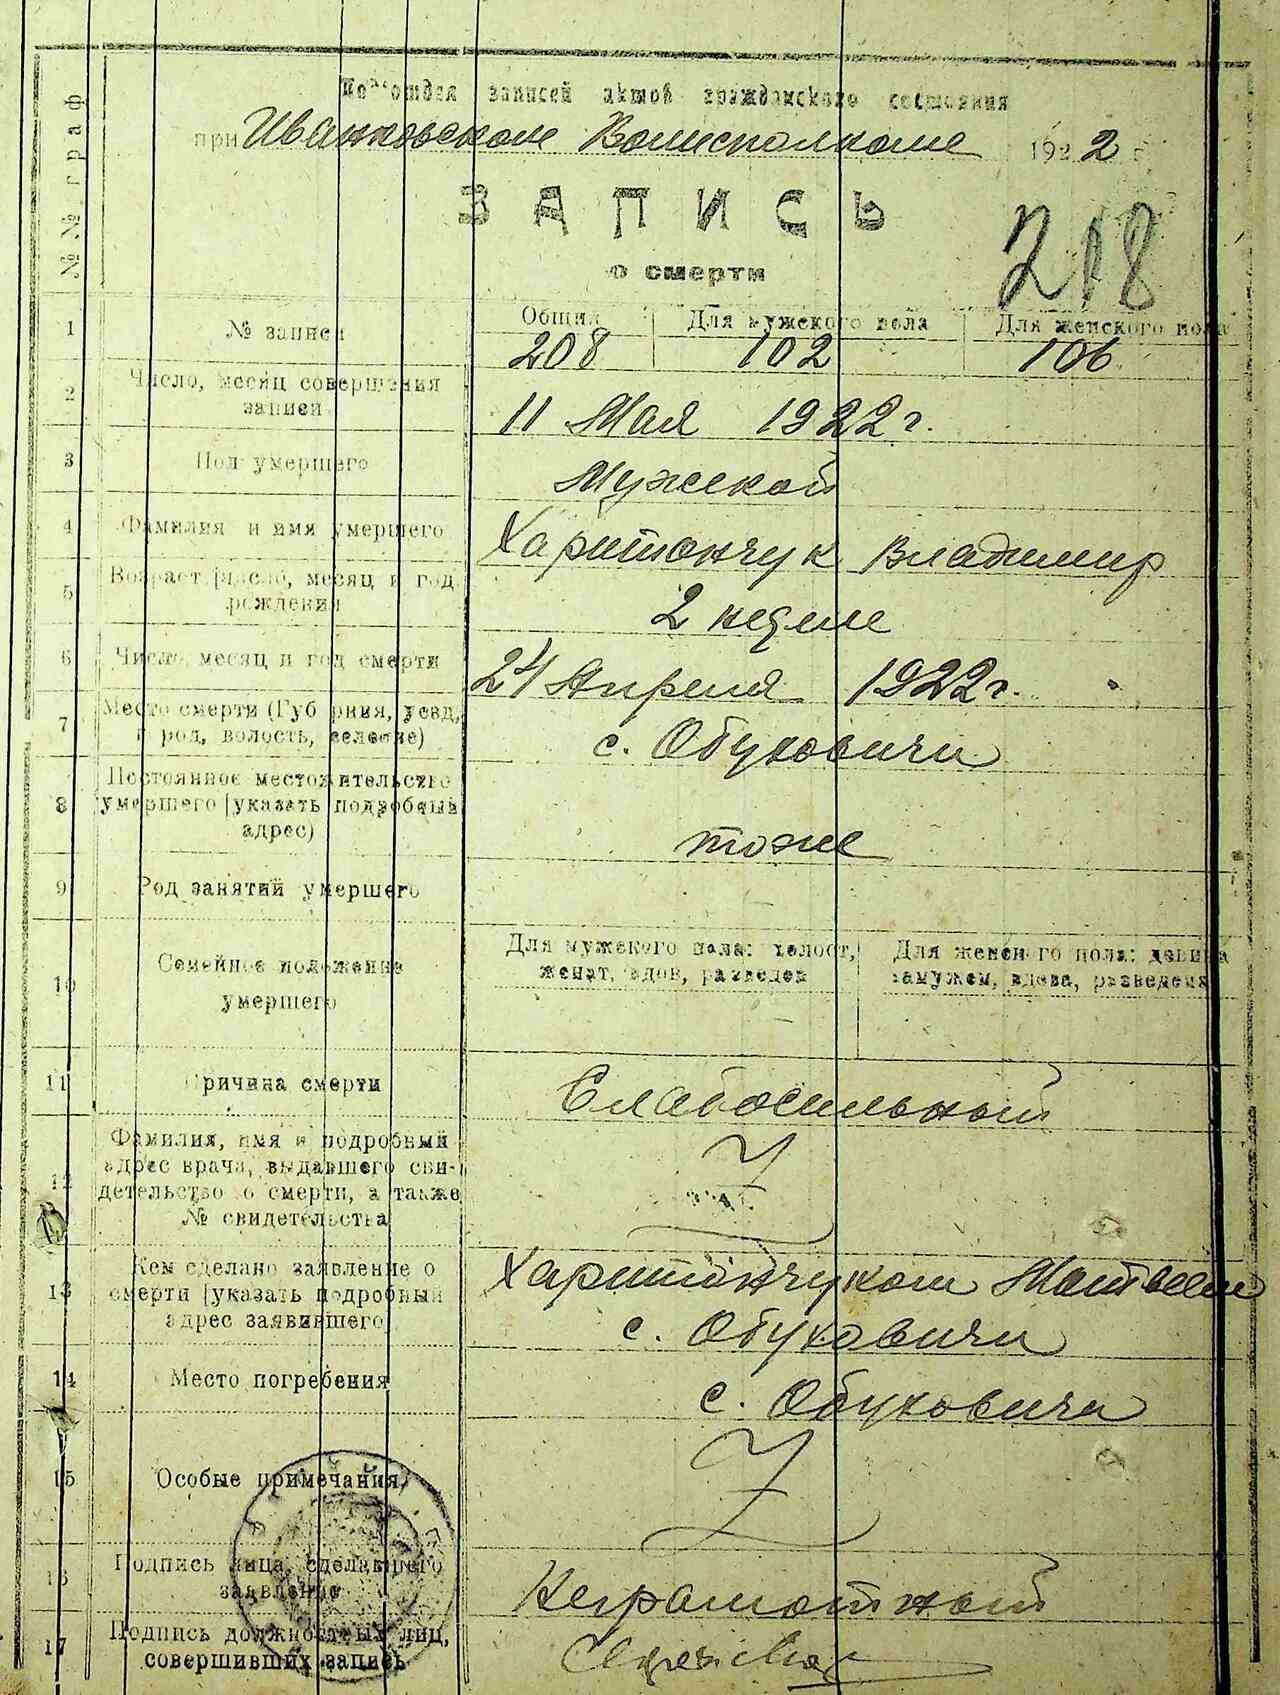 №№ граф
Подотдел записей актов гражданского состояния
при Иванковском Волисполкоме 1922 г.
ЗАПИСЬ
о смерти
218
1 № записи Общий Для мужского пола Для женского пола
208 102 106
2 Число, месяц совершения
записи
11 Мая 1922 г.
3 Пол умершего Мужской
4 Фамилия и имя умершего Харитончук Владимир
5 Возраст (число, месяц и год
рождения
2 недели
6 Число, месяц и год смерти 24 Апреля 1922 г.
7 Место смерти (Губерния, уезд,
город, волость, селение)
с. Обуховичи
8 Постоянное местожительство
умершего (указать подробный
адрес)
тоже
9 Род занятий умершего
10 Семейное положение
умершего
Для мужского пола: холост,
женат, вдов, разведен
Для женского пола: девица
замужем, вдова, разведеня
11 Причина смерти Слабосильный
12 Фамилия, имя и подробный
адрес врача, выдавшего сви-
детельство о смерти, а также
№ свидетельства
13 Кем сделано заявление о
смерти (указать подробный
адрес заявившего)
Харитончуком Матвеем
с. Обуховичи
14 Место погребения с. Обуховичи
15 Особые примечания
16 Подпись лица, сделавшего
заявление
Неграмотный
17 Подпись должностных лиц,
совершивших запись